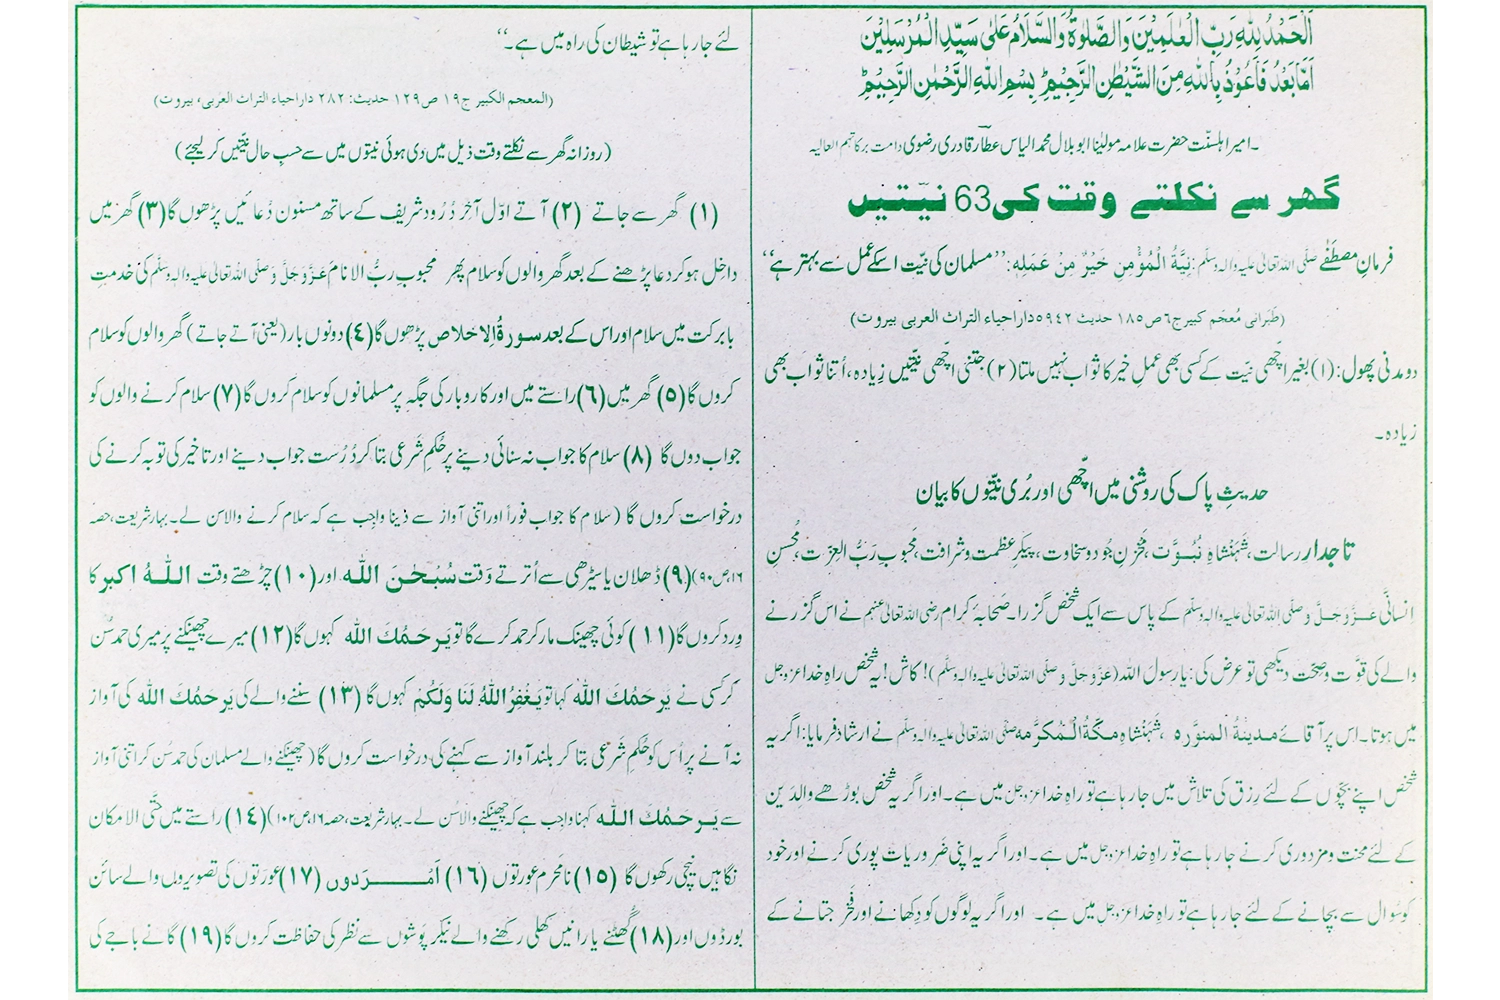 اَلْحَمْدُ لِلّٰہِ رَبِّ الْعٰلَمِیْنَ وَالصَّلٰوۃُ وَالسَّلَامُ عَلٰی سَیِّدِ الْمُرْسَلِیْنَ
اَمَّا بَعْدُ فَاَعُوْذُ بِاللّٰہِ مِنَ الشَّیْطٰنِ الرَّجِیْمِ ؕ بِسْمِ اللّٰہِ الرَّحْمٰنِ الرَّحِیْمِ ؕ
۔امیرِ اہلسنّت حضرت علامہ مولیٰنا ابو بلال محمد الیاس عطار قادری رضوی دامت برکاتہم العالیہ
گھر سے نکلتے وقت کی 63 نیّتیں
فرمانِ مصطفٰے صلّی اللہ تعالیٰ علیہ والہ وسلّم: نِیَّۃُ الْمُؤْمِنِ خَیْرٌ مِنْ عَمَلِہٖ: ’’مسلمان کی نیّت اسکے عمل سے بہتر ہے‘‘
(طَبرانی مُعجَم کبیر ج۶ ص ۱۸۵ حدیث ۵۹۴۲ داراحیاء التراث العربی بیروت)
دو مدنی پھول: (۱) بغیر اچّھی نیّت کے کسی بھی عملِ خیر کا ثواب نہیں ملتا (۲) جتنی اچّھی نیّتیں زِیادہ، اُتنا ثواب بھی
زیادہ۔
حدیثِ پاک کی روشنی میں اچّھی اور بُری نیّتوں کا بیان
تاجدارِ رسالت، شَہَنْشاہِ نُبُوَّت، مَخْزنِ جُود و سخاوت، پیکرِ عظمت و شرافت، مَحبوبِ رَبُّ العِزّت، مُحسنِ
اِنسانیَّ عَزَّوَجَلَّ وَ صلَّی اللہ تعالیٰ علیہ والہ وسلّم کے پاس سے ایک شخص گزرا۔ صَحابۂ کرام رضی اللہ تعالیٰ عنہم نے اس گزرنے
والے کی قوّت و صحّت دیکھی تو عرض کی: یارسولَ اللہ (عَزَّوَجَلَّ وَ صلی اللہ تعالیٰ علیہ والہ وسلّم)! کاش! یہ شخص راہِ خدا عزوجل
میں ہوتا۔ اس پر آقائے مدینۃُ المنوَّرہ، شَہَنْشاہِ مکّۃُ الْمُکرَّمہ صلّی اللہ تعالیٰ علیہ والہ وسلّم نے ارشاد فرمایا: اگر یہ
شخص اپنے بچّوں کے لئے رِزق کی تلاش میں جارہا ہے تو راہِ خدا عزوجل میں ہے۔ اور اگر یہ شخص بوڑھے والدَین
کے لئے محنت و مزدوری کرنے جارہا ہے تو راہِ خدا عزوجل میں ہے۔ اور اگر یہ اپنی ضَروریات پوری کرنے اور خود
کو سُوال سے بچانے کے لئے جارہا ہے تو راہِ خدا عزوجل میں ہے۔ اور اگر یہ لوگوں کو دِکھانے اور فَخْر جتانے کے
لئے جارہا ہے تو شیطان کی راہ میں ہے۔‘‘
(المعجم الکبیر ج۱۹ ص۱۲۹ حدیث: ۲۸۲ داراحیاء التراث العربی، بیروت)
(روزانہ گھر سے نکلتے وقت ذیل میں دی ہوئی نیتوں میں سے حسبِ حال نیّتیں کر لیجئے)
(۱) گھر سے جاتے (۲) آتے اوّل آخر دُرُود شریف کے ساتھ مسنون دُعائیں پڑھوں گا (۳) گھر میں
داخِل ہو کر دعا پڑھنے کے بعد گھر والوں کو سلام پھر محبوبِ ربُّ الانام عَزَّوَجَلَّ وَ صلَّی اللہ تعالیٰ علیہ والہ وسلّم کی خدمتِ
بابرکت میں سلام اور اس کے بعد سورۃُ الاخلاص پڑھوں گا (۴) دونوں بار (یعنی آتے جاتے) گھر والوں کو سلام
کروں گا (۵) گھر میں (۶) راستے میں اور کاروبار کی جگہ پر مسلمانوں کو سلام کروں گا (۷) سلام کرنے والوں کو
جواب دوں گا (۸) سلام کا جواب نہ سنائی دینے پر حُکمِ شَرعی بتا کر دُرُست جواب دینے اور تاخیر کی توبہ کرنے کی
درخواست کروں گا (سلام کا جواب فوراً اور اتنی آواز سے دینا واجِب ہے کہ سلام کرنے والا سن لے۔ بہارِ شریعت، حصّہ
۱۶، ص۹۰) (۹) ڈَھلان یا سیڑھی سے اُترتے وَقت سُبْحٰنَ اللّٰہ اور (۱۰) چڑھتے وقت اَللّٰہُ اکبر کا
وِرد کروں گا (۱۱) کوئی چھینک مار کر حمد کرے گا تو یَرحَمُکَ اللّٰہ کہوں گا (۱۲) میرے چھینکنے پر میری حمد سُن
کر کسی نے یَرحَمُکَ اللّٰہ کہا تو یَغْفِرُ اللّٰہُ لَنَا وَلَکُمْ کہوں گا (۱۳) سننے والے کی یَرحَمُکَ اللّٰہ کی آواز
نہ آنے پر اُس کو حُکمِ شَرعی بتا کر بلند آواز سے کہنے کی درخواست کروں گا (چھینکنے والے مسلمان کی حمد سُن کر اتنی آواز
سے یَرحَمُکَ اللّٰہ کہنا واجِب ہے کہ چھینکنے والا سُن لے۔ بہارِ شریعت، حصّہ ۱۶، ص۱۰۲) (۱۴) راستے میں حتَّی الامکان
نگاہیں نیچی رکھوں گا (۱۵) نامَحرم عورتوں (۱۶) اَمْرَدوں (۱۷) عورتوں کی تصویروں والے سائن
بورڈوں اور (۱۸) گُھٹنے یا رانیں کُھلی رکھنے والے نیکر پَوشوں سے نظر کی حفاظت کروں گا (۱۹) گانے باجے کی